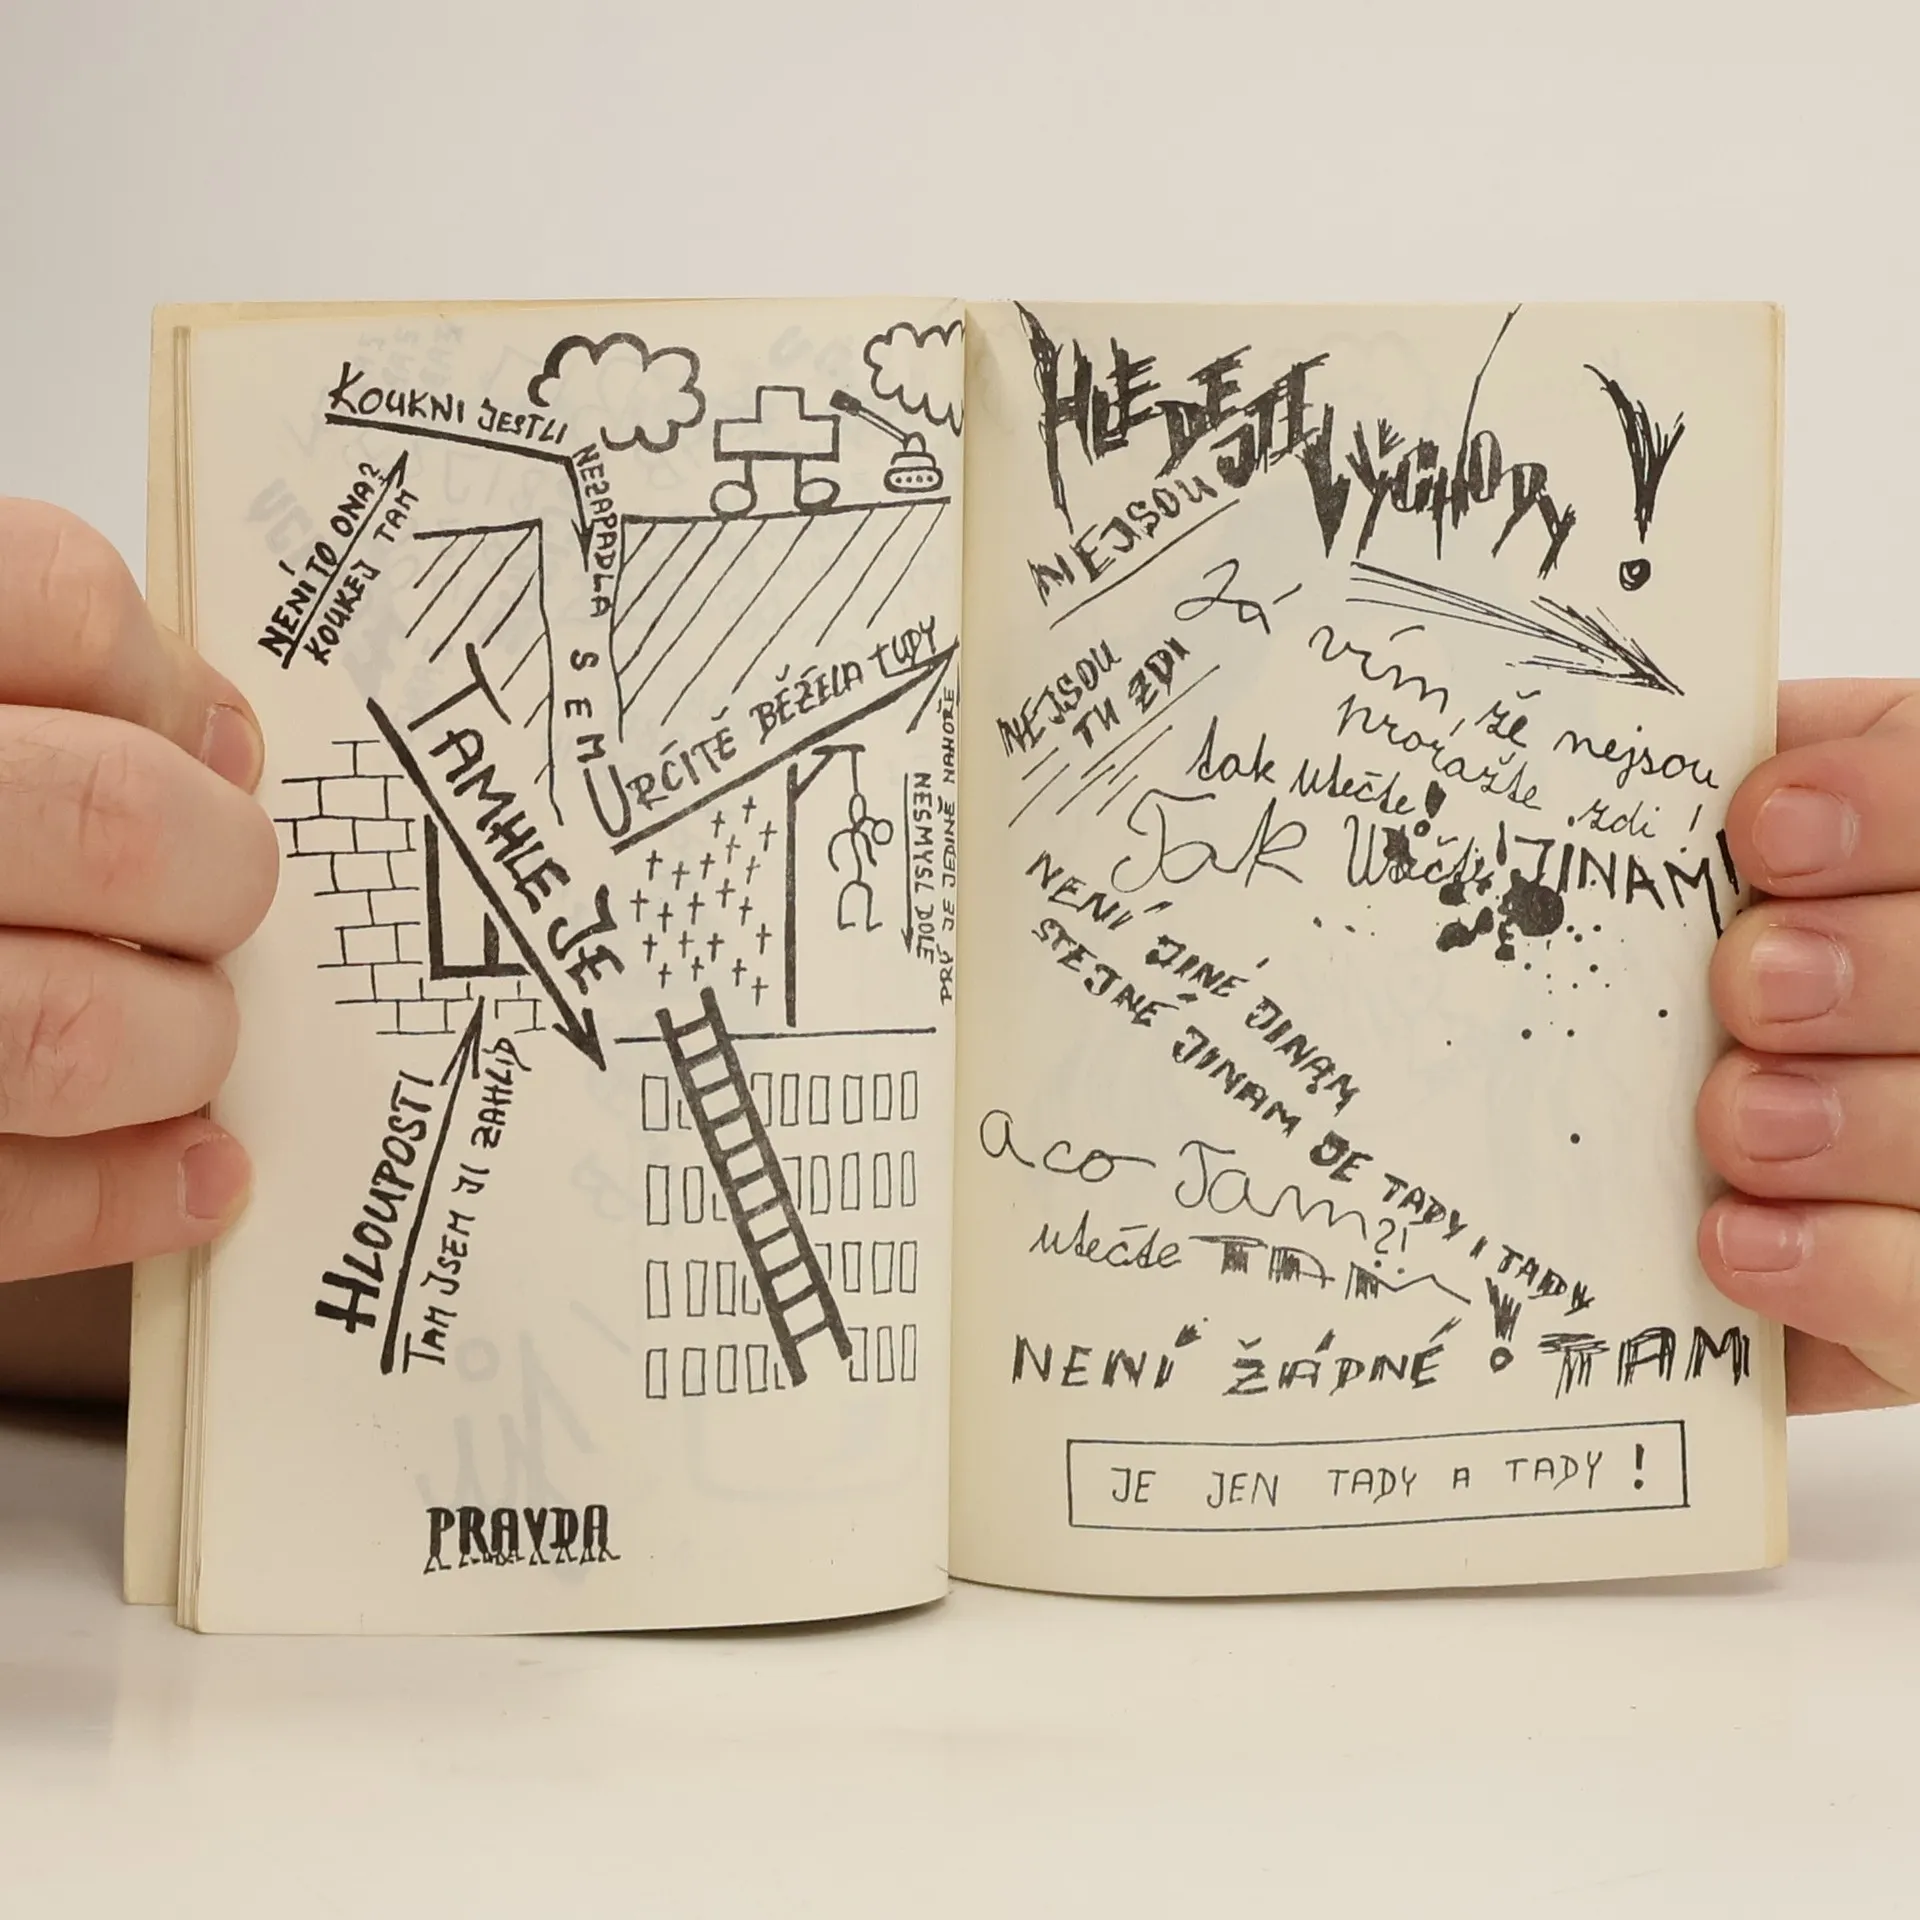 KOUKNI JESTLI
NEZAPADLA
SEM
NENÍ TO ONA?
KOUKEJ TAM
TAMHLE JE
URČITĚ BĚŽELA TUDY
NESMYSL DOLE
PRÝ JE JEDINĚ NAHOŘE
HLOUPOSTI
TAM JSEM JI ZAHLÍD
PRAVDA
HLEDEJTE VÝCHODY!
NEJSOU
Já vím, že nejsou
NEJSOU
TU ZDI
prorazte zdi!
tak utečte!
Tak Utečte JINAM!
NENÍ JINÉ JINAM
STEJNÉ JINAM JE TADY I TADY
a co Tam?!
utečte TAM!
NENÍ ŽÁDNÉ TAM
JE JEN TADY A TADY!